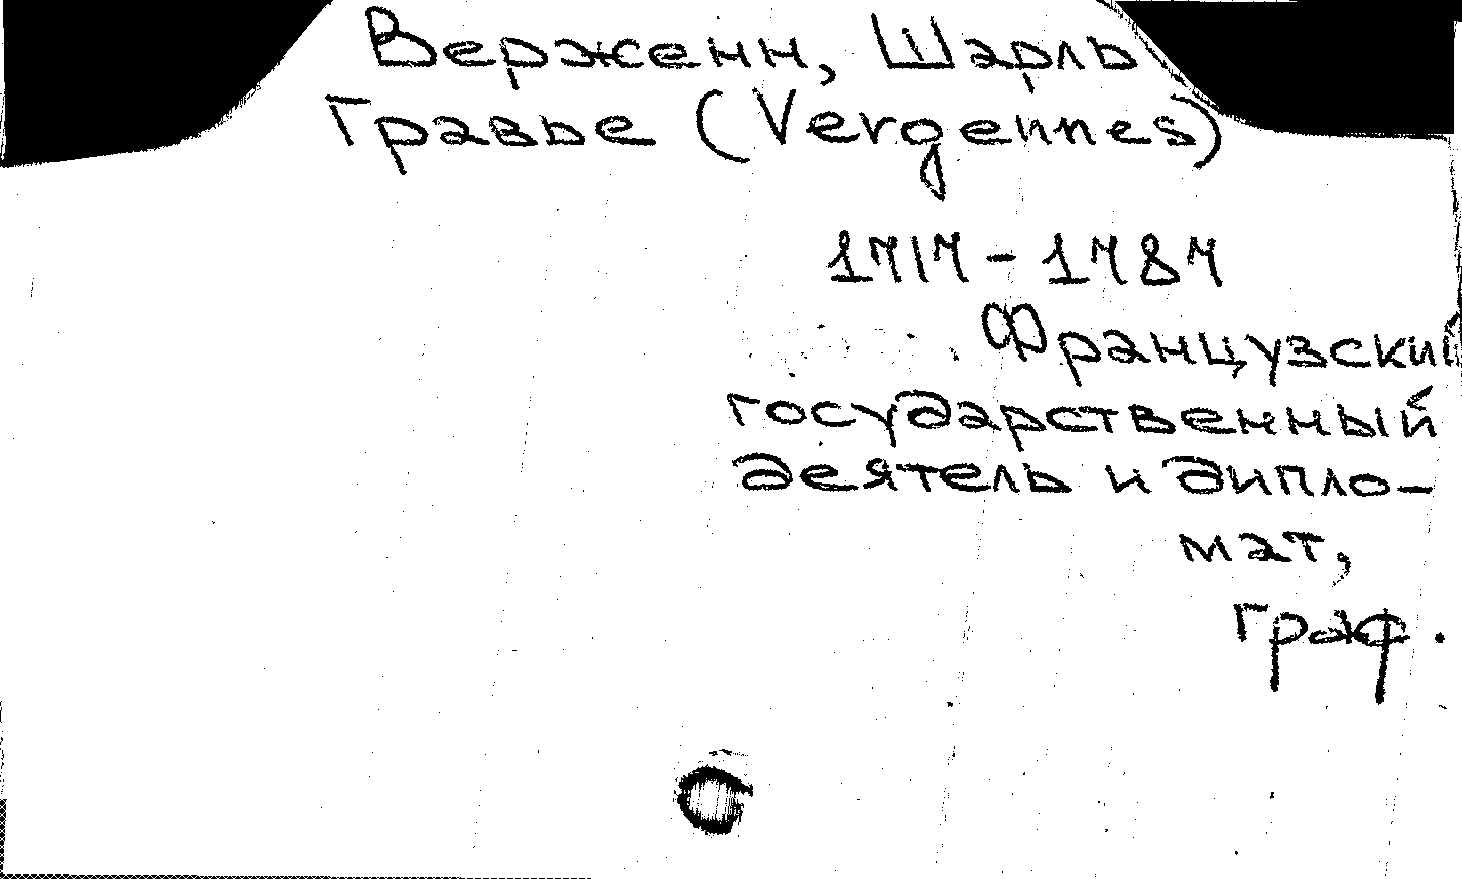 Верженн, Шарль
Гравье (Vergennes)
1717 - 1787
Французский
государственный
деятель и дипло-
мат,
граф.